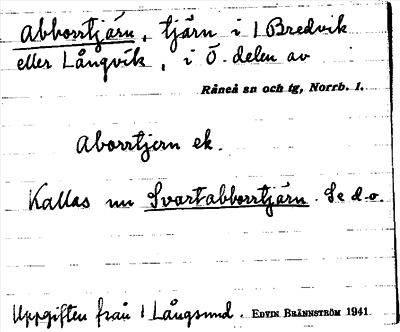 Abborrtjärn, tjärn i 1 Bredvik
eller Långvik, i Ö. delen av
Råneå sn och tg, Norrb. l.
Aborrtjern ek.
Kallas nu Svartabborrtjärn. Se d.o.
Uppgiften från 1 Långsund. EDVIN BRÄNNSTRÖM 1941